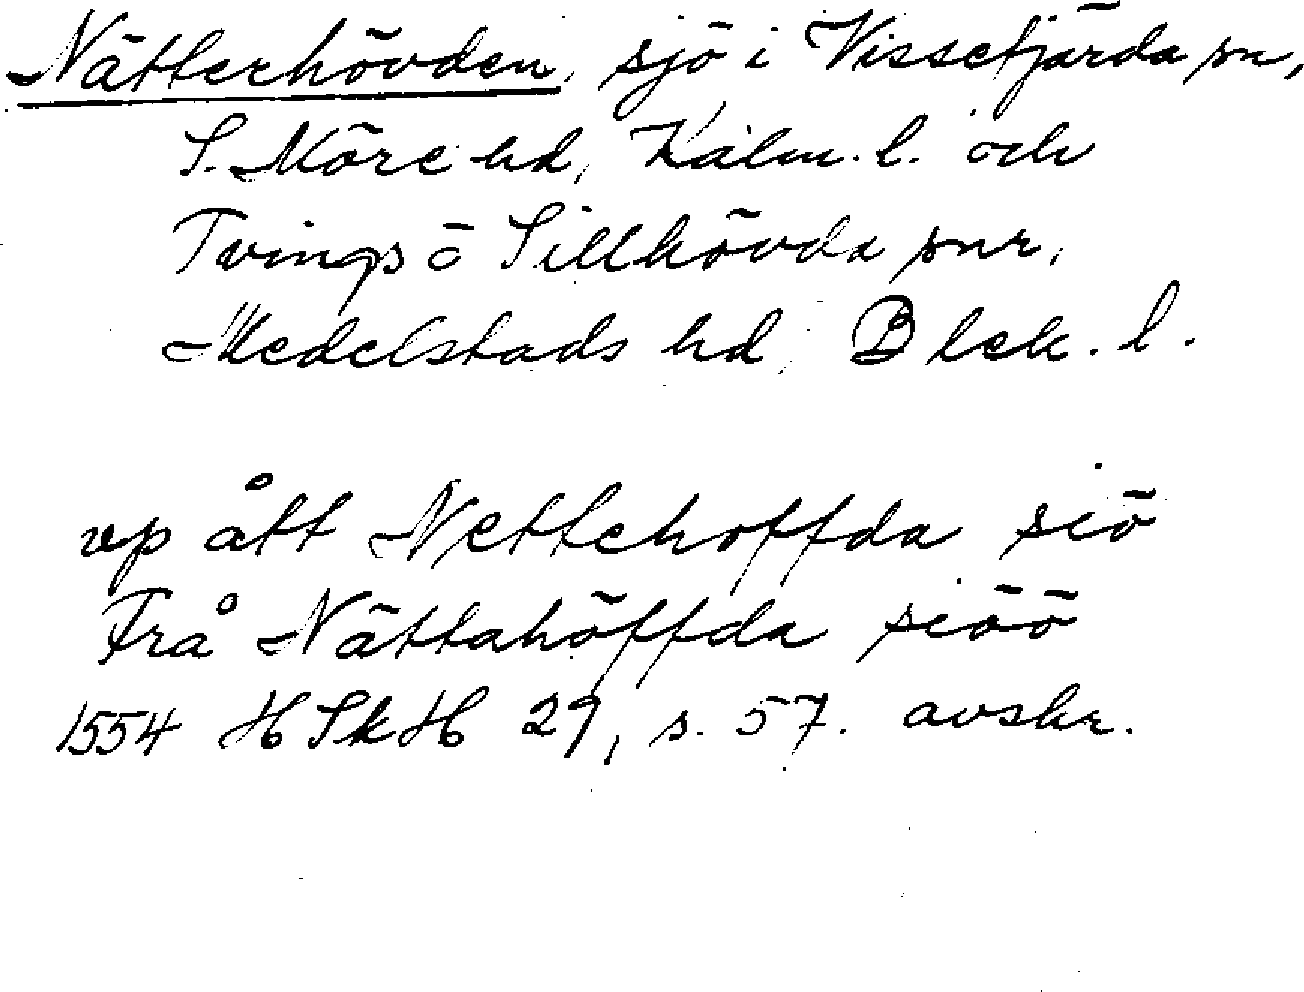 Nätterhövden, sjö i Vissefjärda sn,
S. Möre hd, Kalm. l. och
Tvings o Sillhövda snr,
Medelstads hd, Blek. l.
vp ått Nettehoffda siö
Frå Nättahöffda siöö
1554 HSkH 29, s. 57. avskr.